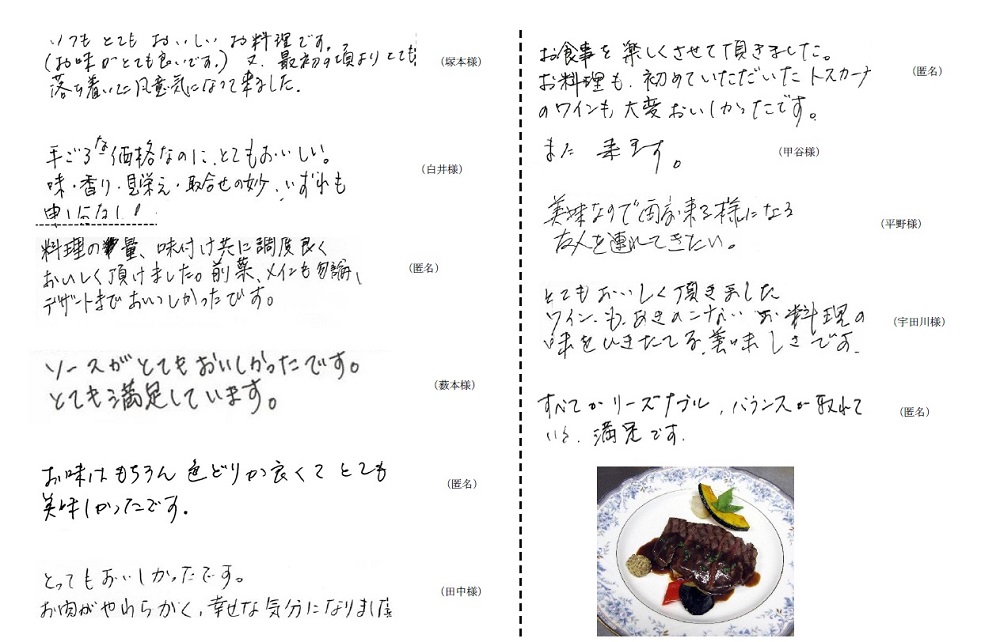 いつもとてもおいしいお料理です。
(お味がとても良いです。)又、最初の頃よりとても
落ち着いた雰囲気になって来ました。
(塚本様)
手ごろな価格なのに、とてもおいしい。
味・香り・見栄え・取合せの妙、いずれも
申し分なし!
(白井様)
料理の量、味付け共に調度良く
おいしく頂けました。前菜、メインも勿論、
デザートまでおいしかったです。
(匿名)
ソースがとてもおいしかったです。
とても満足しています。
(藪本様)
お味はもちろん 色どりが良くて とても
美味しかったです。
(匿名)
とってもおいしかったです。
お肉がやわらかく、幸せな気分になりました
(田中様)
お食事を楽しくさせて頂きました。
お料理も、初めていただいたトスカーナ
のワインも大変おいしかったです。
(匿名)
また来ます。
(甲谷様)
美味なので再び来る様になる
友人を連れてきたい。
(平野様)
とてもおいしく頂きました
ワインも、あきのこないお料理の
味をひきたてる美味しさです。
(宇田川様)
すべてがリーズナブル、バランスが取れて
いる、満足です。
(匿名)